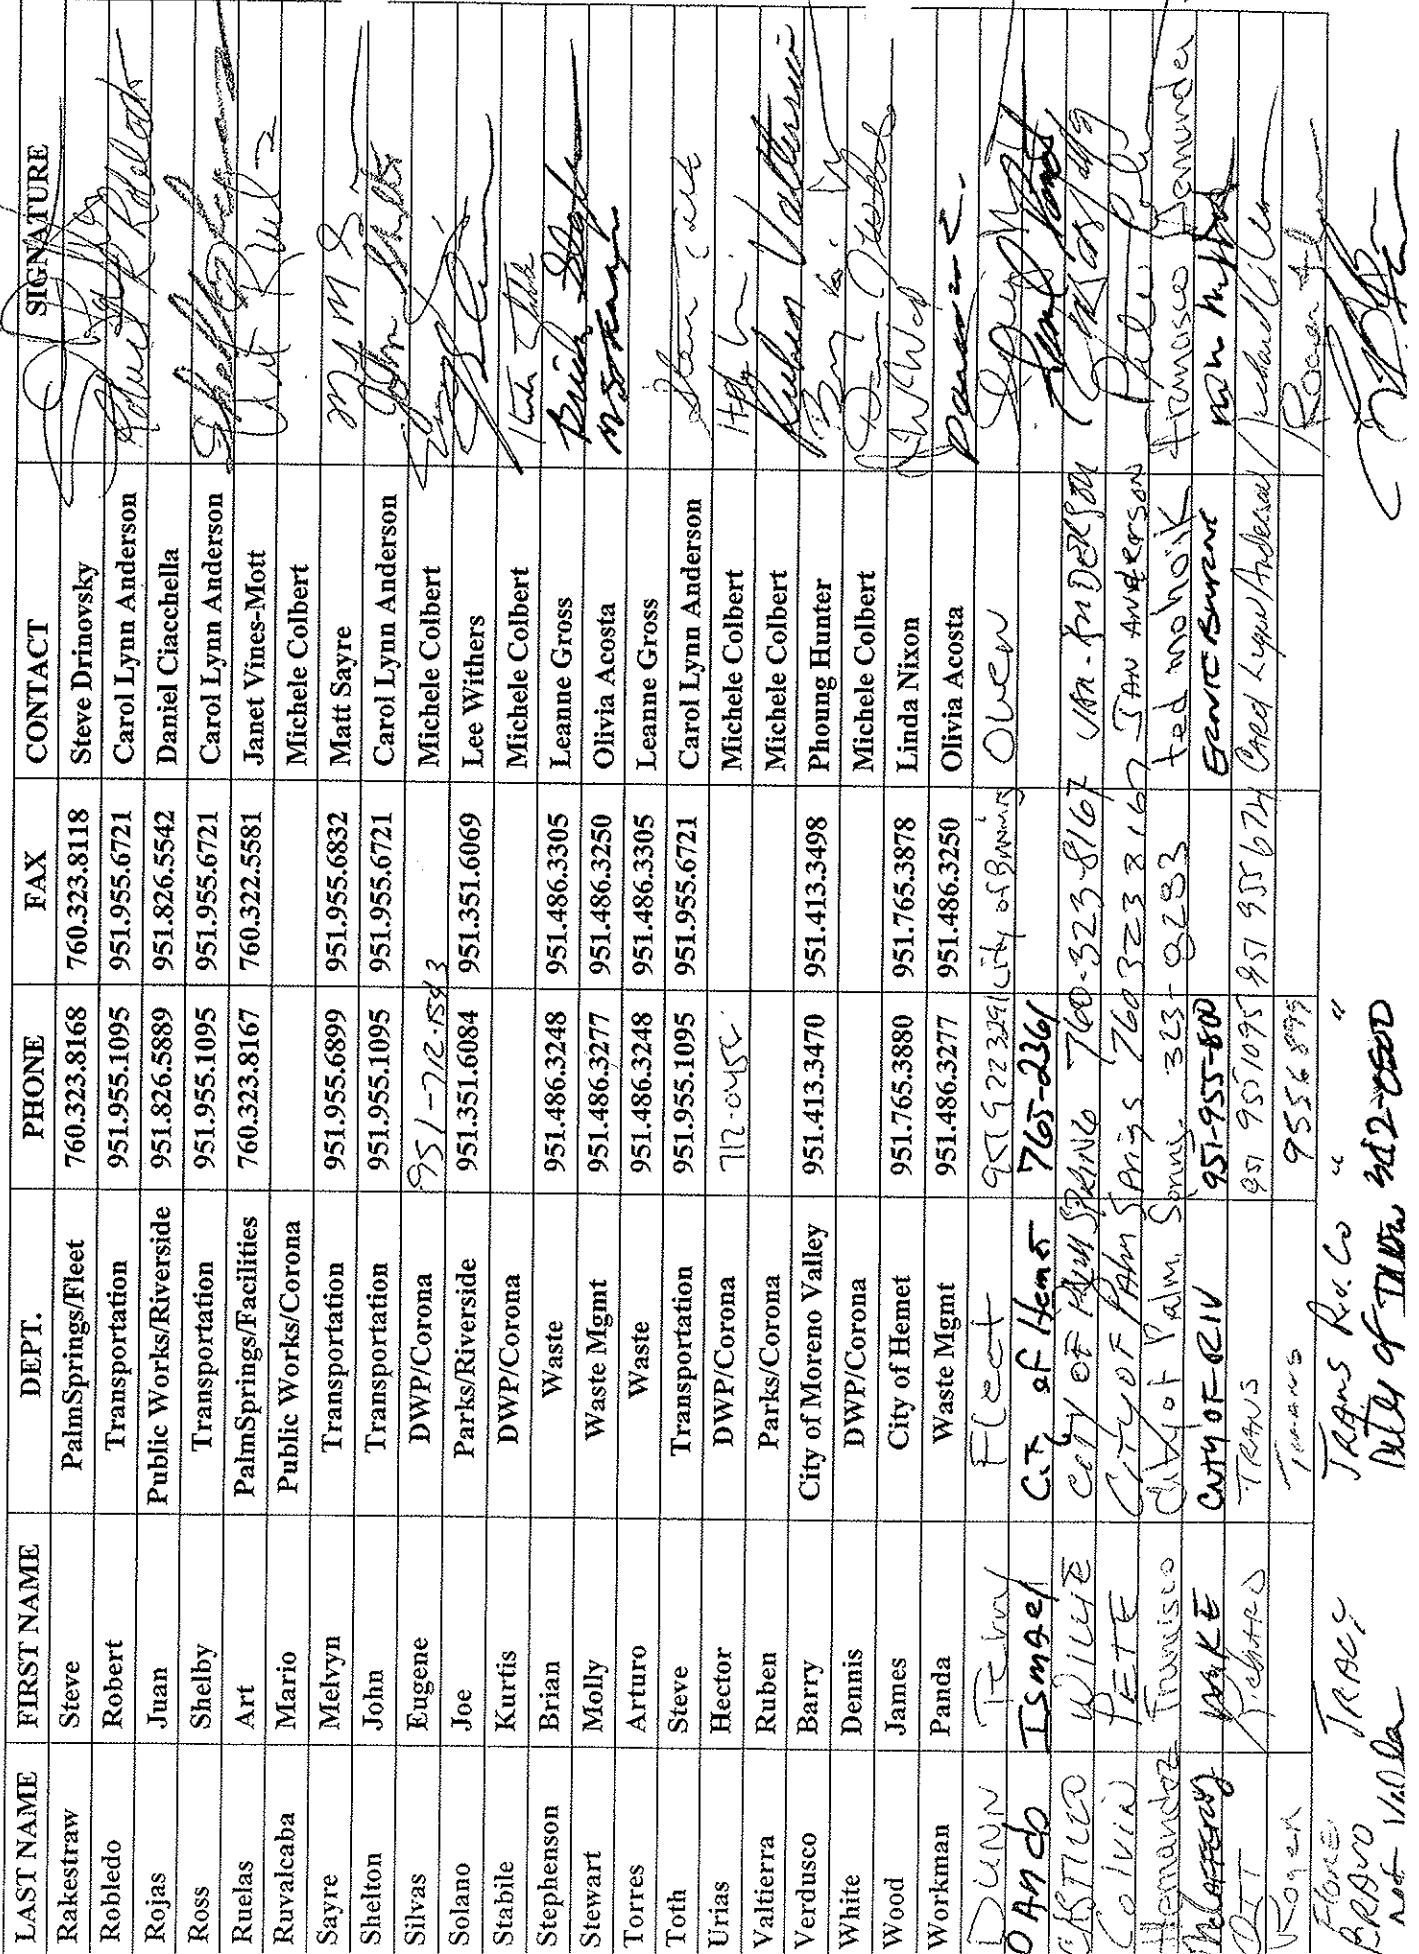 LAST NAME FIRST NAME DEPT. PHONE FAX CONTACT SIGNATURE
Rakestraw Steve PalmSprings/Fleet 760.323.8168 760.323.8118 Steve Drinovsky
Robledo Robert Transportation 951.955.1095 951.955.6721 Carol Lynn Anderson
Rojas Juan Public Works/Riverside 951.826.5889 951.826.5542 Daniel Ciacchella
Ross Shelby Transportation 951.955.1095 951.955.6721 Carol Lynn Anderson
Ruelas Art PalmSprings/Facilities 760.323.8167 760.322.5581 Janet Vines-Mott
Ruvalcaba Mario Public Works/Corona Michele Colbert
Sayre Melvyn Transportation 951.955.6899 951.955.6832 Matt Sayre
Shelton John Transportation 951.955.1095 951.955.6721 Carol Lynn Anderson
Silvas Eugene DWP/Corona 951-712-1543 Michele Colbert
Solano Joe Parks/Riverside 951.351.6084 951.351.6069 Lee Withers
Stabile Kurtis DWP/Corona Michele Colbert
Stephenson Brian Waste 951.486.3248 951.486.3305 Leanne Gross
Stewart Molly Waste Mgmt 951.486.3277 951.486.3250 Olivia Acosta
Torres Arturo Waste 951.486.3248 951.486.3305 Leanne Gross
Toth Steve Transportation 951.955.1095 951.955.6721 Carol Lynn Anderson
Urias Hector DWP/Corona 712-0455 Michele Colbert
Valtierra Ruben Parks/Corona Michele Colbert Ruben Valtierra
Verdusco Barry City of Moreno Valley 951.413.3470 951.413.3498 Phoung Hunter
White Dennis DWP/Corona Michele Colbert
Wood James City of Hemet 951.765.3880 951.765.3878 Linda Nixon
Workman Panda Waste Mgmt 951.486.3277 951.486.3250 Olivia Acosta
DUNN Fleet 951 922 3291 City of Banning Owen
OAndo Ismael City of Hemet 765-2361
CASTILLO WILLIE City OF PALM SPRING 760-323-8167
Colvin PETE City OF PAlm Springs 760 323 8167 JAN ANDERSON
Hernandez City of Palm Spring. 323-8283 ted
MIKE CNTY OF RIV 951-955-800 ERNIE
DIT Richard TRANS 951 9551095 951 955 6721 Carol Lynn Anderson
Roger Trans 955 6899
TRACY TRANS Riv. Co " "
BRAVO City of 342-0500